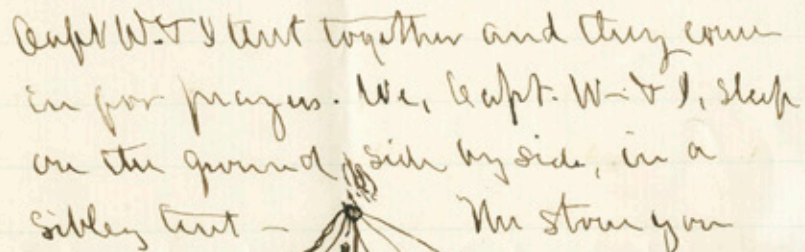 Capt W. & I tent together and they come
in for prayers. We, Capt. W- & I, sleep
on the ground, side by side, in a
Sibley tent - The stove you